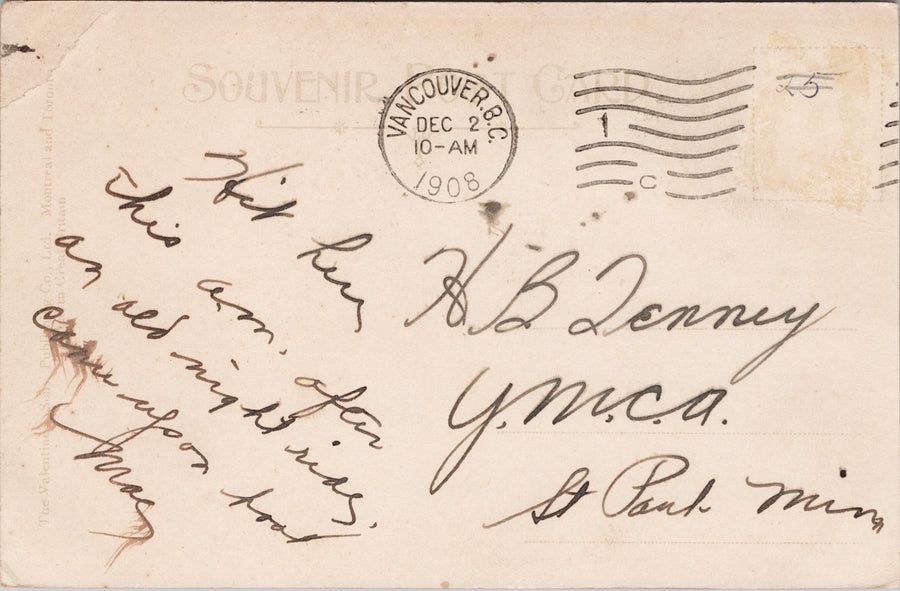 SOUVENIR POST CARD
VANCOUVER. B.C.
DEC 2
10-AM
1908
1
C
25
Hit here
this am. after
an old night ride,
came upon boat
Mac
H. B Tenney
Y.M.C.A.
St Paul. Minn
The Valentine & Co., Ltd. Montreal and Toronto
Printed in Great Britain